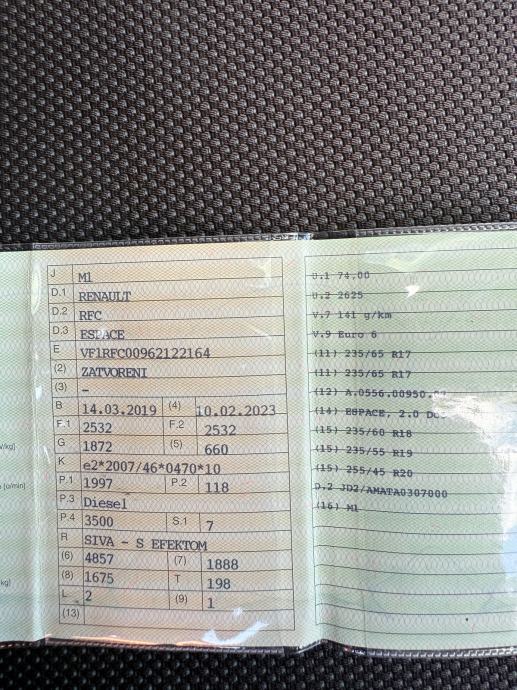 J M1
D.1 RENAULT
D.2 RFC
D.3 ESPACE
E VF1RFC00962122164
(2) ZATVORENI
(3) –
B 14.03.2019 (4) 10.02.2023
F.1 2532 F.2 2532
G 1872 (5) 660
K e2*2007/46*0470*10
P.1 1997 P.2 118
P.3 Diesel
P.4 3500 S.1 7
R SIVA - S EFEKTOM
(6) 4857 (7) 1888
(8) 1675 T 198
L 2 (9) 1
(13)
/kg]
[o/min]
kg]
U.1 74,00
U.2 2625
V.7 141 g/km
V.9 Euro 6
(11) 235/65 R17
(11) 235/65 R17
(12) A.0556.00950.
(14) ESPACE, 2.0
(15) 235/60 R18
(15) 235/55 R19
(15) 255/45 R20
D.2 JD2/AMATA0307000
(16) M1